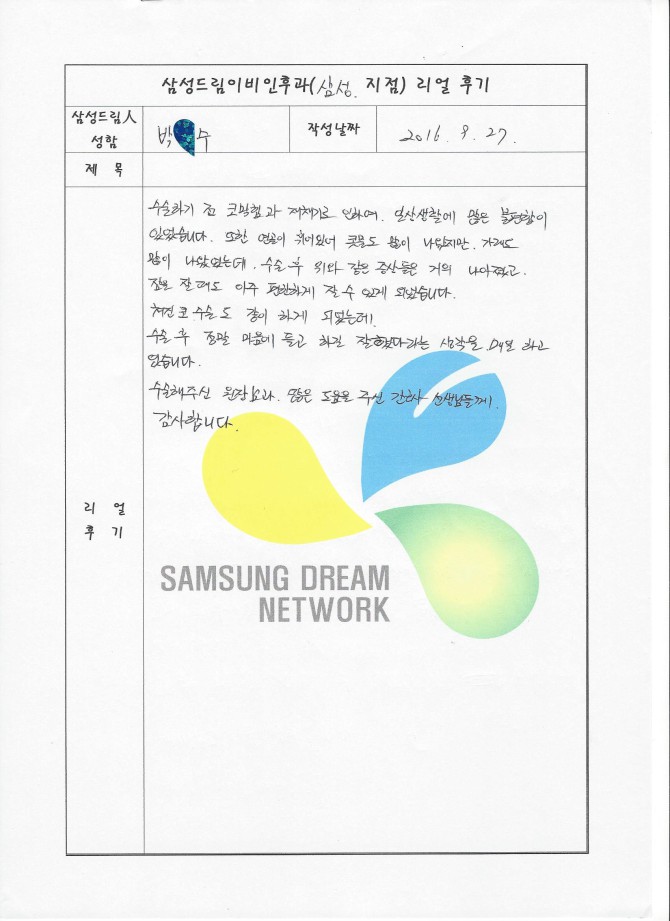 삼성드림이비인후과(삼성 지점) 리얼 후기
삼성드림人 성함
박 수
작성날짜
2016. 9. 27.
제 목
리 얼 후 기
수술하기 전 코막힘과 재채기로 인하여, 일상생활에 많은 불편함이
있었습니다. 또한 연골이 휘어있어 콧물도 많이 나왔지만, 가래도
많이 나왔었는데, 수술 후 위와 같은 증상들은 거의 나아졌고,
잠을 잘때도 아주 편안하게 잘 수 있게 되었습니다.
쳐진 코 수술도 같이 하게 되었는데!
수술 후 정말 마음에 들고 하길 잘했다라는 생각을 매번 하고
있습니다.
수술해주신 원장님과, 많은 도움을 주신 간호사 선생님들께,
감사합니다.
SAMSUNG DREAM
NETWORK